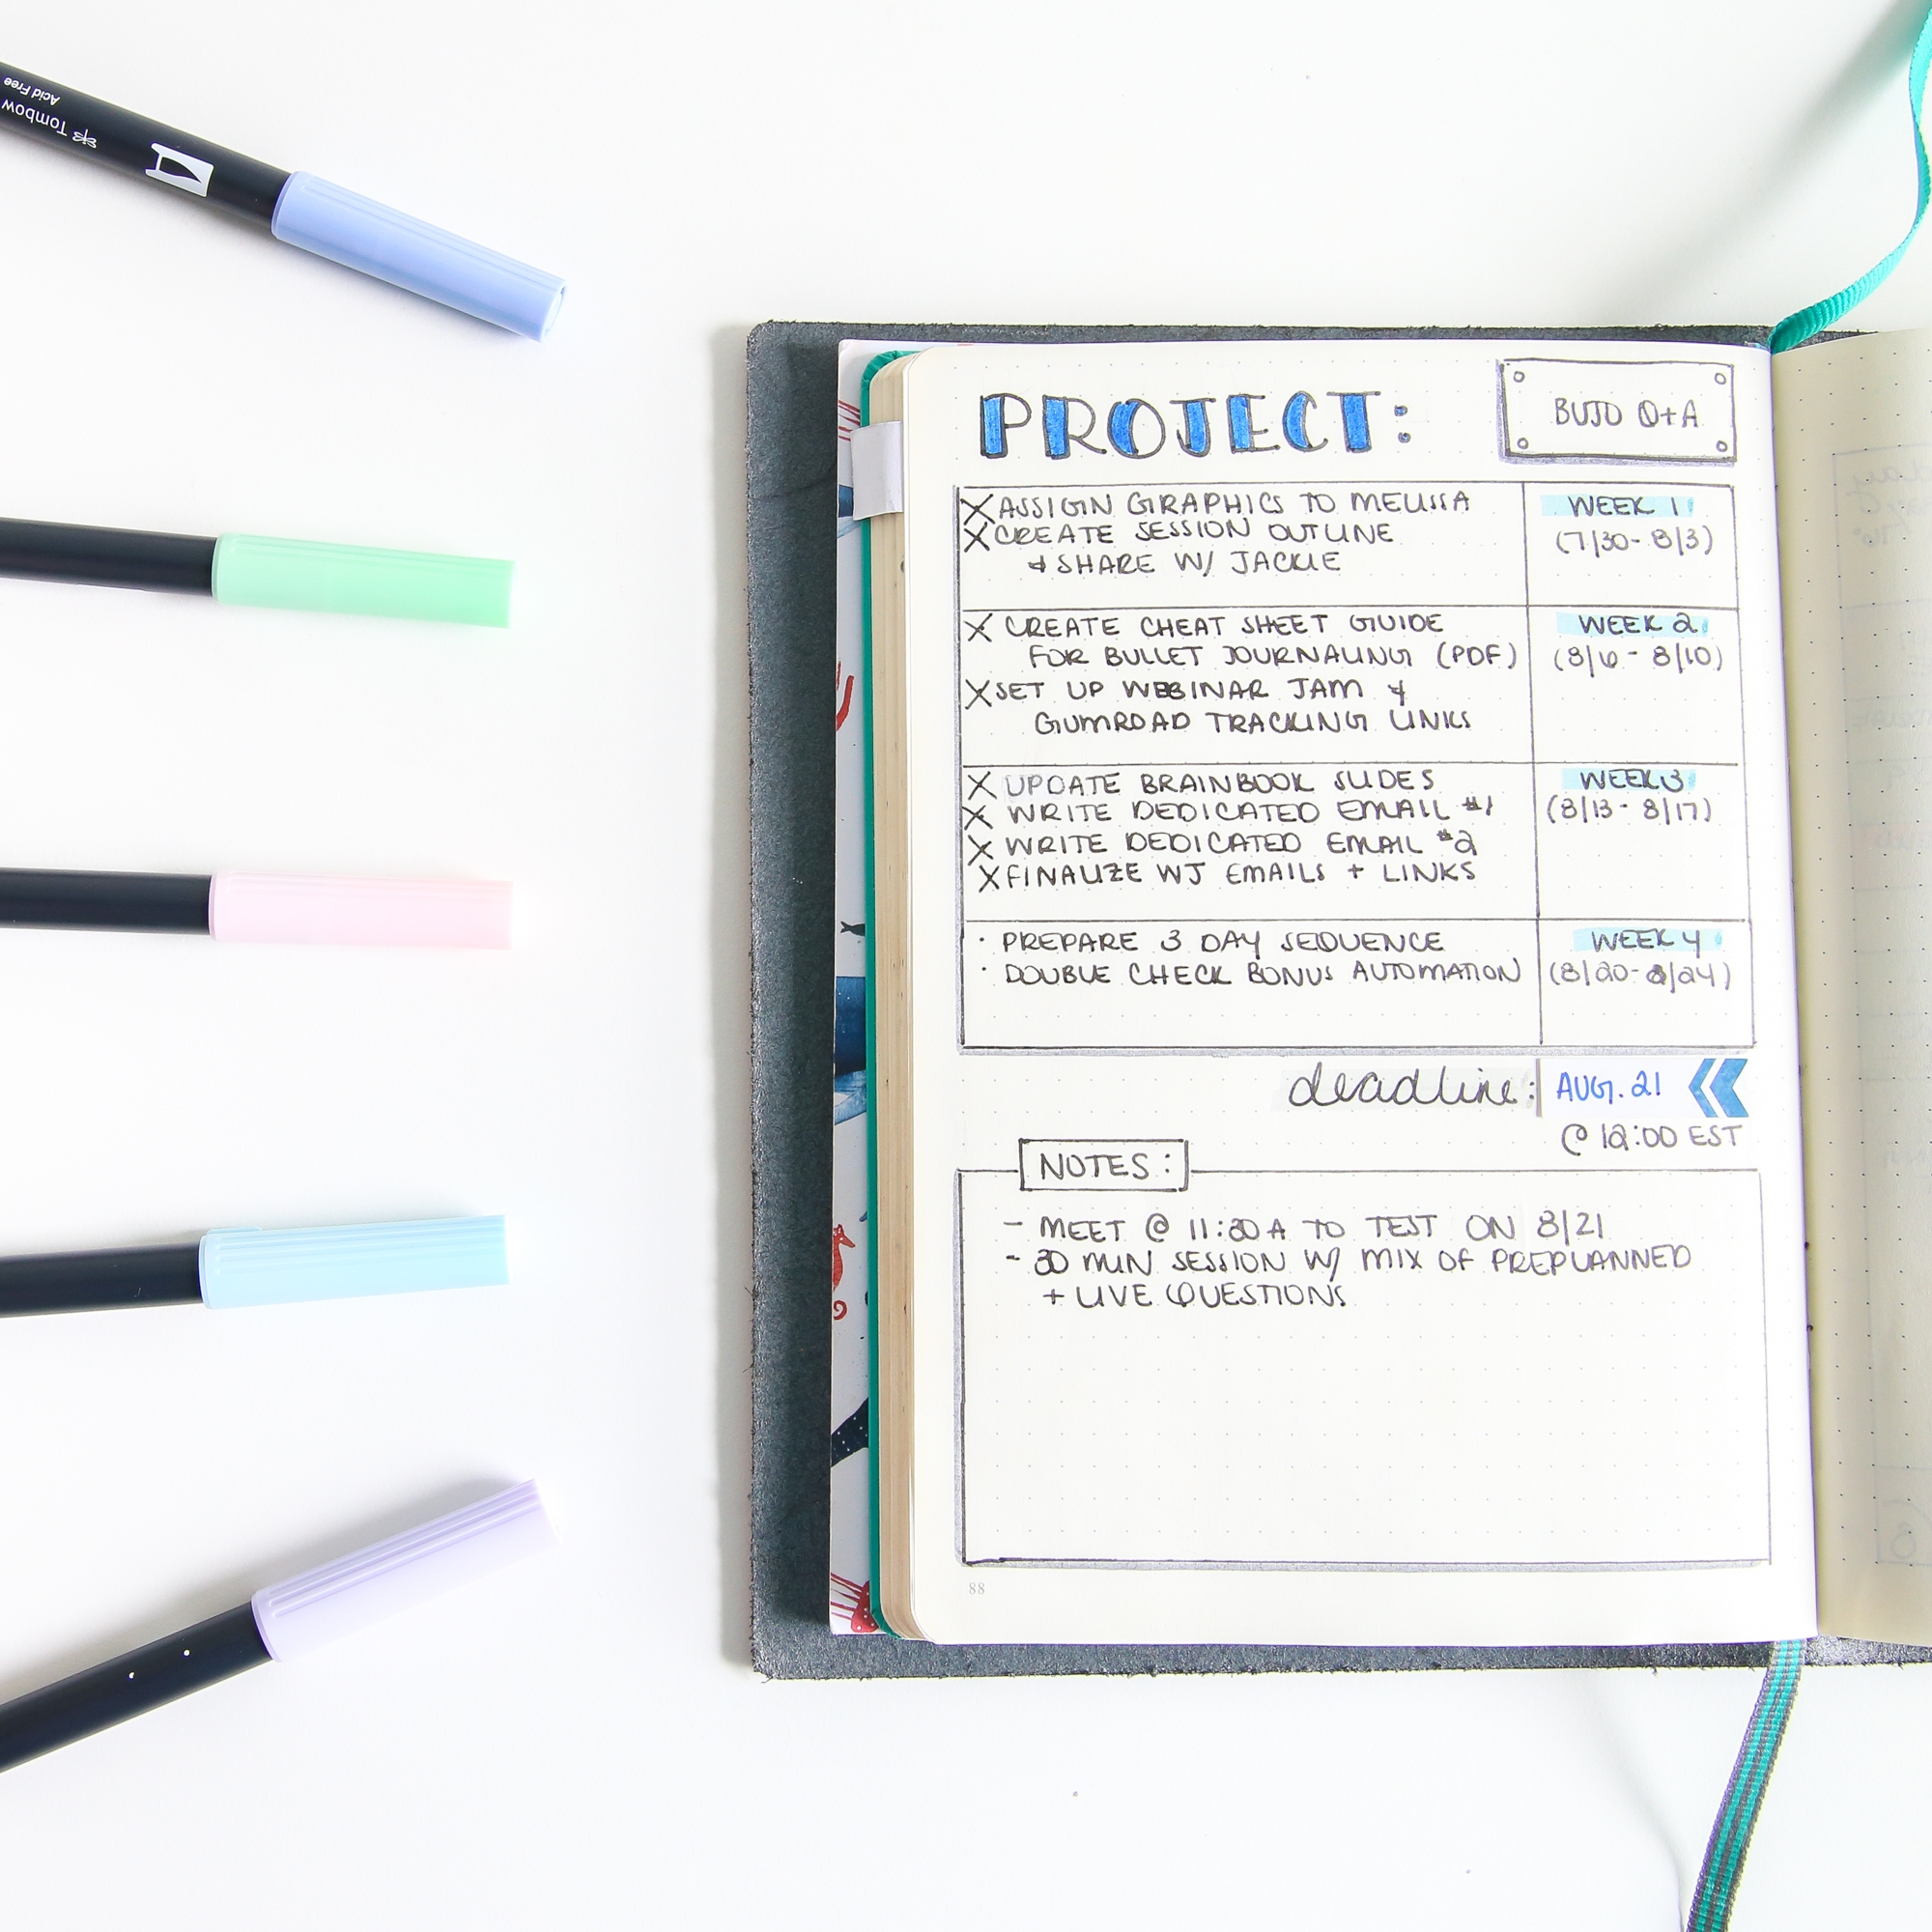 Tombow
Acid Free
PROJECT:
BUJO Q+A
X ASSIGN GRAPHICS TO MELISSA
X CREATE SESSION OUTLINE
& SHARE W/ JACKIE
WEEK 1
(7/30 - 8/3)
X CREATE CHEAT SHEET GUIDE
FOR BULLET JOURNALING (PDF)
X SET UP WEBINAR JAM &
GUMROAD TRACKING LINKS
WEEK 2
(8/6 - 8/10)
X UPDATE BRAINBOOK SLIDES
X WRITE DEDICATED EMAIL #1
X WRITE DEDICATED EMAIL #2
X FINALIZE WJ EMAILS + LINKS
WEEK 3
(8/13 - 8/17)
· PREPARE 3 DAY SEQUENCE
· DOUBLE CHECK BONUS AUTOMATION
WEEK 4
(8/20 - 8/24)
deadline: AUG. 21
@ 12:00 EST
NOTES:
- MEET @ 11:30A TO TEST ON 8/21
- 30 MIN SESSION W/ MIX OF PREPLANNED
+ LIVE QUESTIONS
88